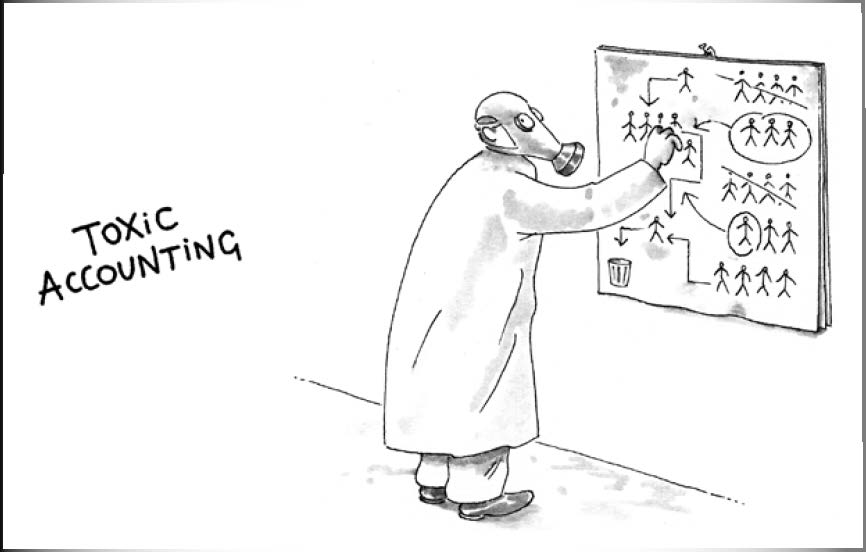 TOXiC
ACCOUNTiNG